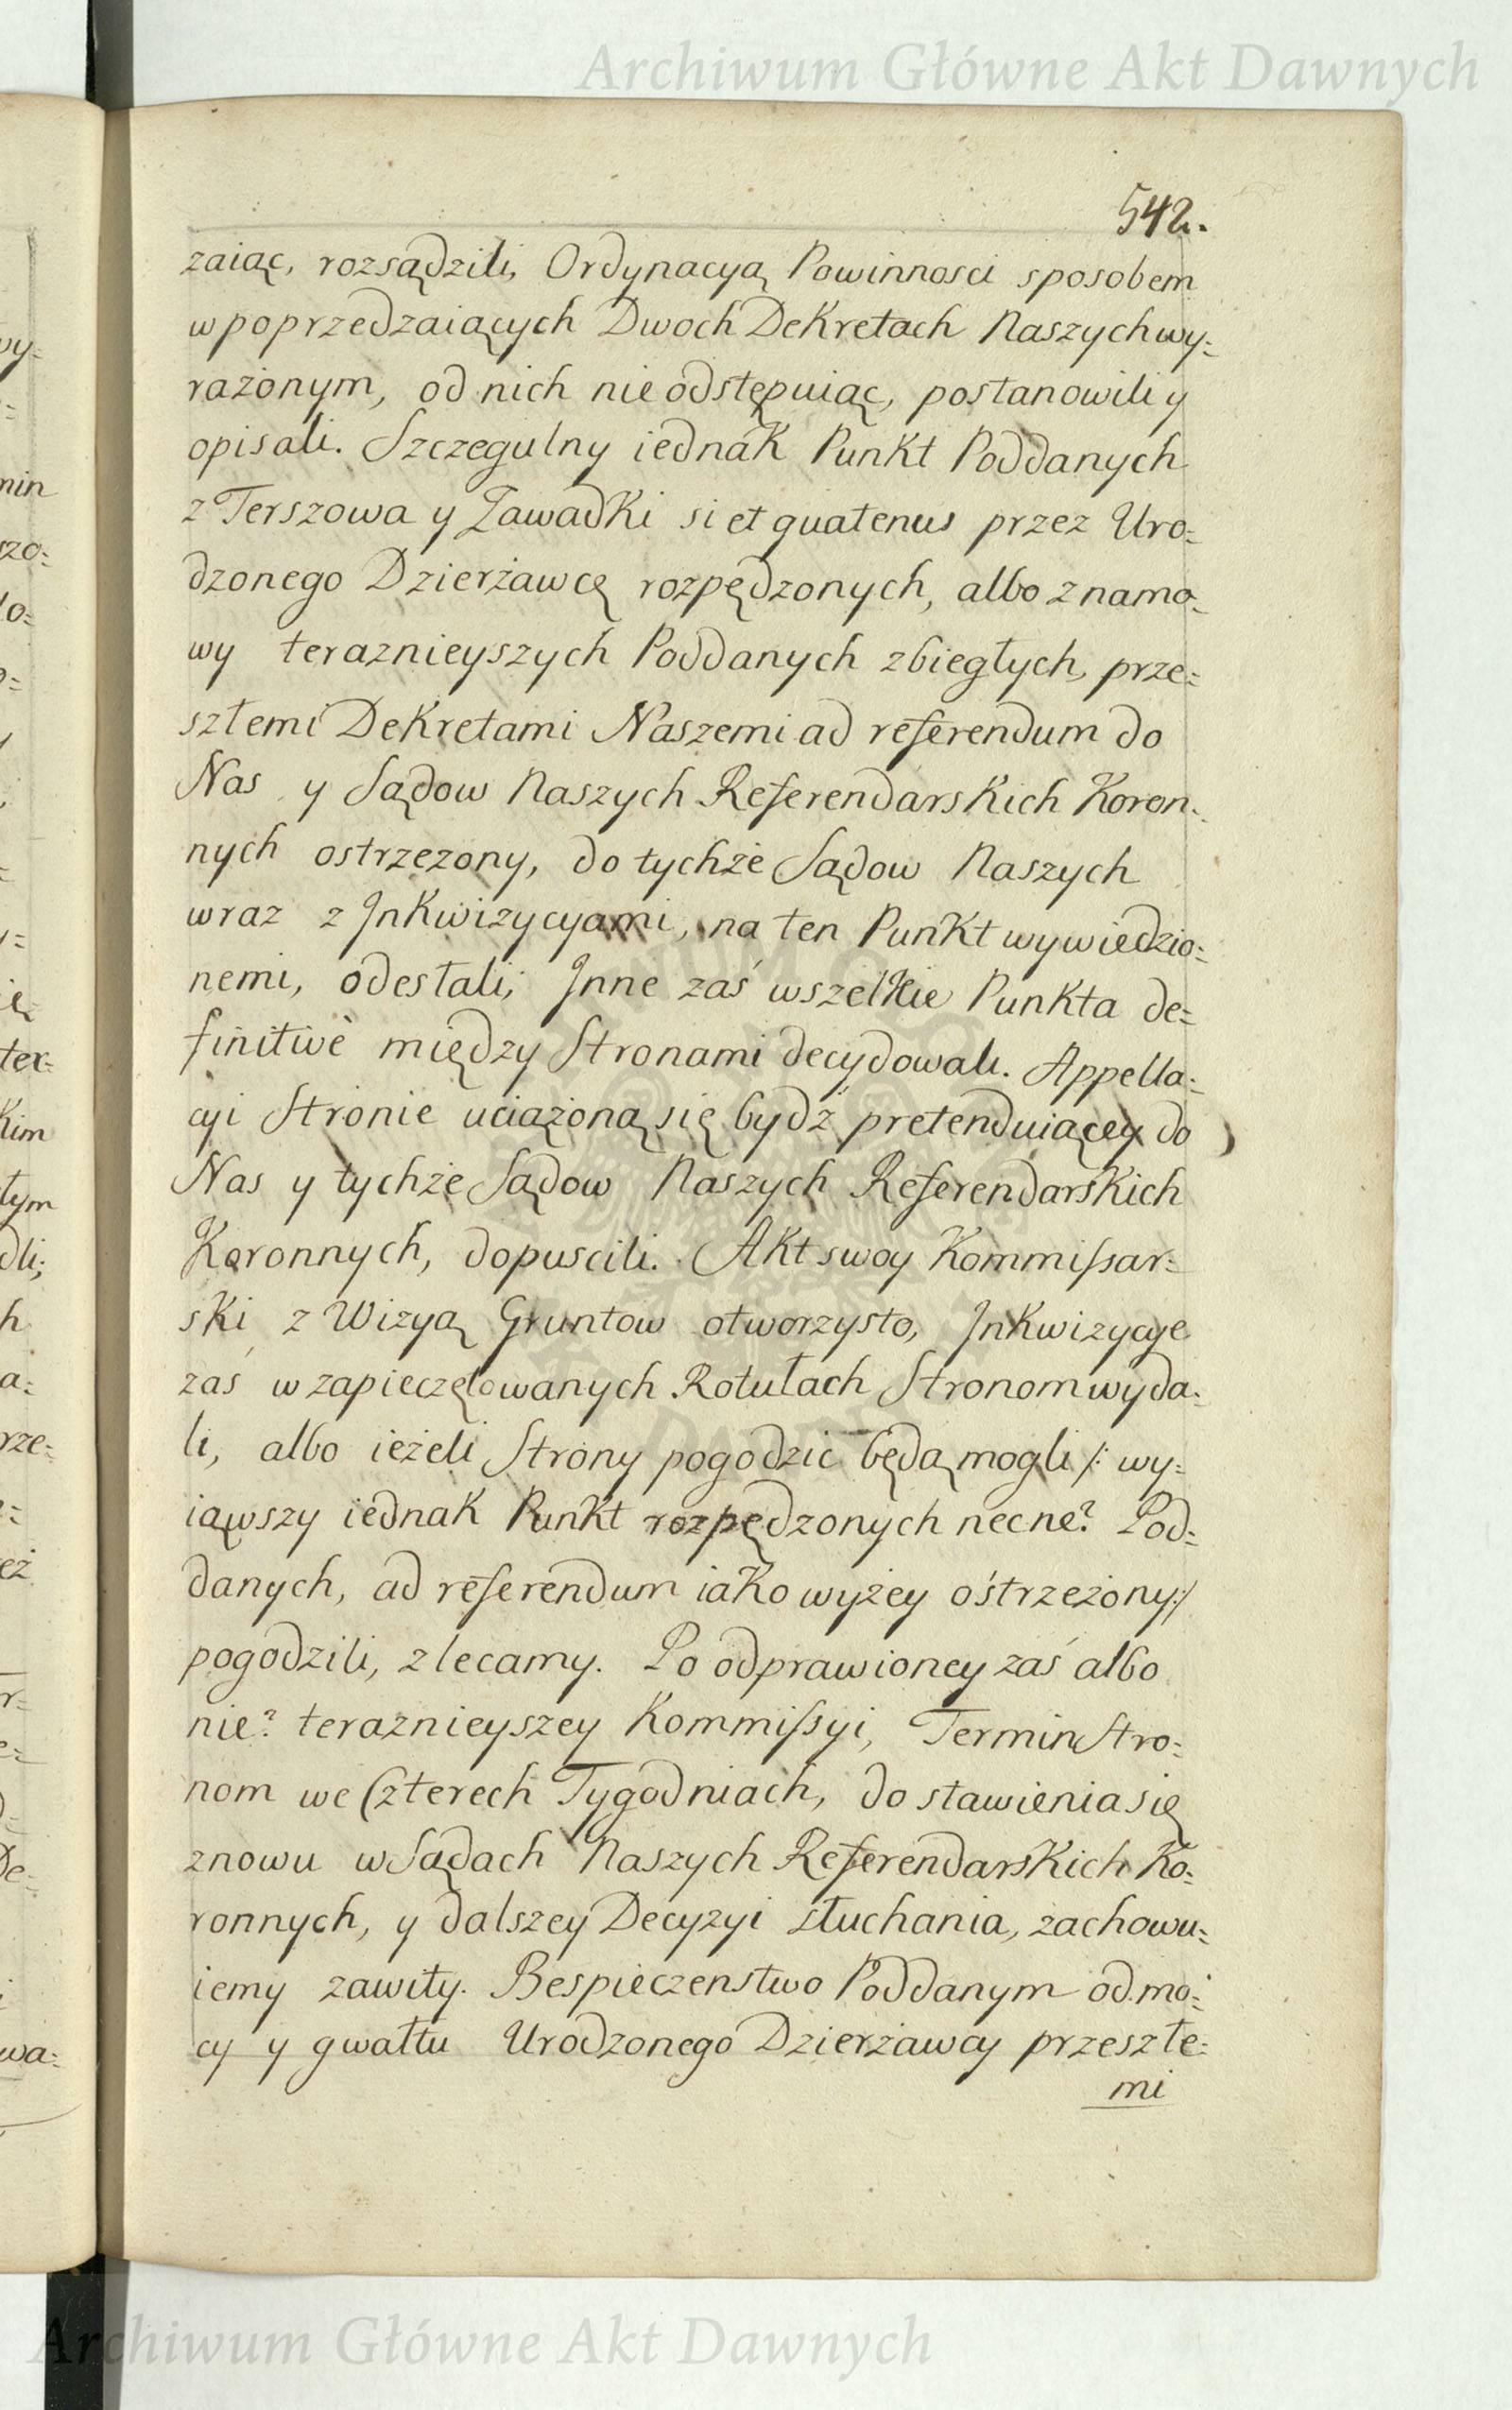 Archiwum Główne Akt Dawnych
542.
zaiąc, rozsądzili, Ordynacyą Powinnosci sposobem
w poprzedzaiących Dwoch Dekretach Naszych wy=
rażonym, od nich nie odstępuiąc, postanowili y
opisali. Szczegulny iednak Punkt Poddanych
z Terszowa y Zawadki si et quatenus przez Uro=
dzonego Dzierżawcę rozpędzonych, albo z namo=
wy teraznieyszych Poddanych zbiegłych, prze=
szłemi Dekretami Naszemi ad referendum do
Nas y Sądow Naszych Referendarskich Koron=
nych ostrzezony, do tychże Sądow Naszych
wraz z Inkwizycyami, na ten Punkt wywiedzio=
nemi, odesłali; Inne zaś wszelkie Punkta de=
finitivè między Stronami decydowali. Appella=
cyi Stronie uciążoną się bydź pretenduiącey do
Nas y tychże Sądow Naszych Referendarskich
Koronnych, dopuscili. Akt swoy Kommissar=
ski z Wizyą Gruntow otworzysto, Inkwizycye
zaś w zapieczętowanych Rotułach Stronom wyda=
li, albo ieżeli Strony pogodzic będą mogli /: wy=
iąwszy iednak Punkt rozpędzonych necne? Pod=
danych, ad referendum iako wyżey ostrzeżony :/
pogodzili, zlecamy. Po odprawioney zaś albo
nie? teraznieyszey Kommissyi, Termin Stro=
nom we Czterech Tygodniach, do stawienia się
znowu w Sądach Naszych Referendarskich Ko=
ronnych, y dalszey Decyzyi słuchania, zachowu=
iemy zawity. Bespieczenstwo Poddanym od mo=
cy y gwałtu Urodzonego Dzierżawcy przeszłe=
mi
Archiwum Główne Akt Dawnych